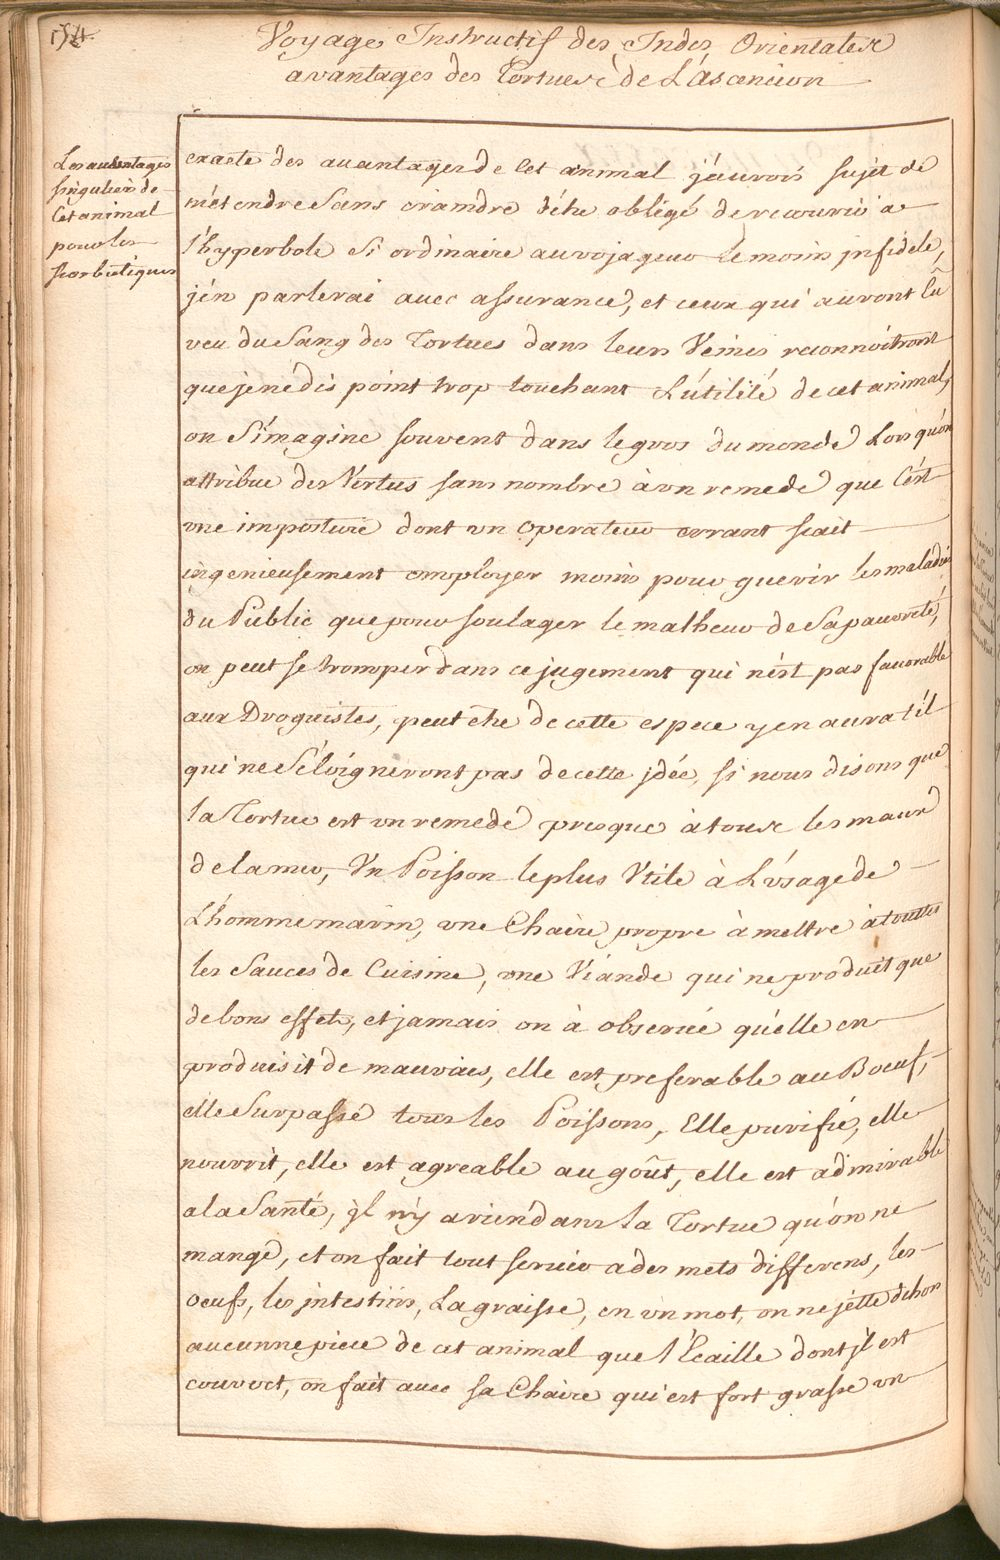 154.
Voyage Instructif des Indes Orientales
avantages des Tortues de L'ascencion
Les auantages
singuliers de
Cet animal
pour les
scorbutiques
exacte des auantages de Cet animal j'aurois sujet de
m'etendre Sans craindre d'étre obligé de recourir a
l'hyperbole Si ordinaire au vojageur le moins jnfidele,
j'en parlerai auec assurance, et ceux qui auront lû
veu du Sang des Tortues dans leurs Veines reconnoitront
que je ne dis point trop touchant L'utilité de cet animal,
on S'imagine souvent dans le gros du monde Lors qu'on
attribue des Vertus sans nombre à un remede que C'est
une imposture dont un Operateur errant scait
ingenieusement employer moins pour guerir les maladies
du Public que pour soulager le malheur de Sa pauvreté,
on peut se tromper dans ce jugement qui n'est pas fauorable
aux Droguistes, peut etre de cette espece y en aura t'il
qui ne S'éloigneront pas de cette jdée, si nous disons que
la Tortue est un remede presque à tous les maux
de la mer, Un Poisson le plus Utile à L'usage de
L'homme marin, une Chaire propre à mettre à touttes
les Sauces de Cuisine, une Viande qui ne produit que
de bons effets, et jamais on à obserué qu'elle en
produisit de mauvais, elle est preferable au Boeuf,
elle Surpasse tous les Poissons, Elle purifie, elle
nourrit, elle est agreable au goût, elle est admirable
a la Santé, jl n'y a rien dans la Tortue qu'on ne
mange, et on fait tout seruir a des mets differens, les
oeufs, les jntestins, La graisse, en un mot, on ne jette dehors
aucunne piece de cet animal que l'Ecaille dont jl est
couvert, on fait auec sa Chaire qui est fort grasse un